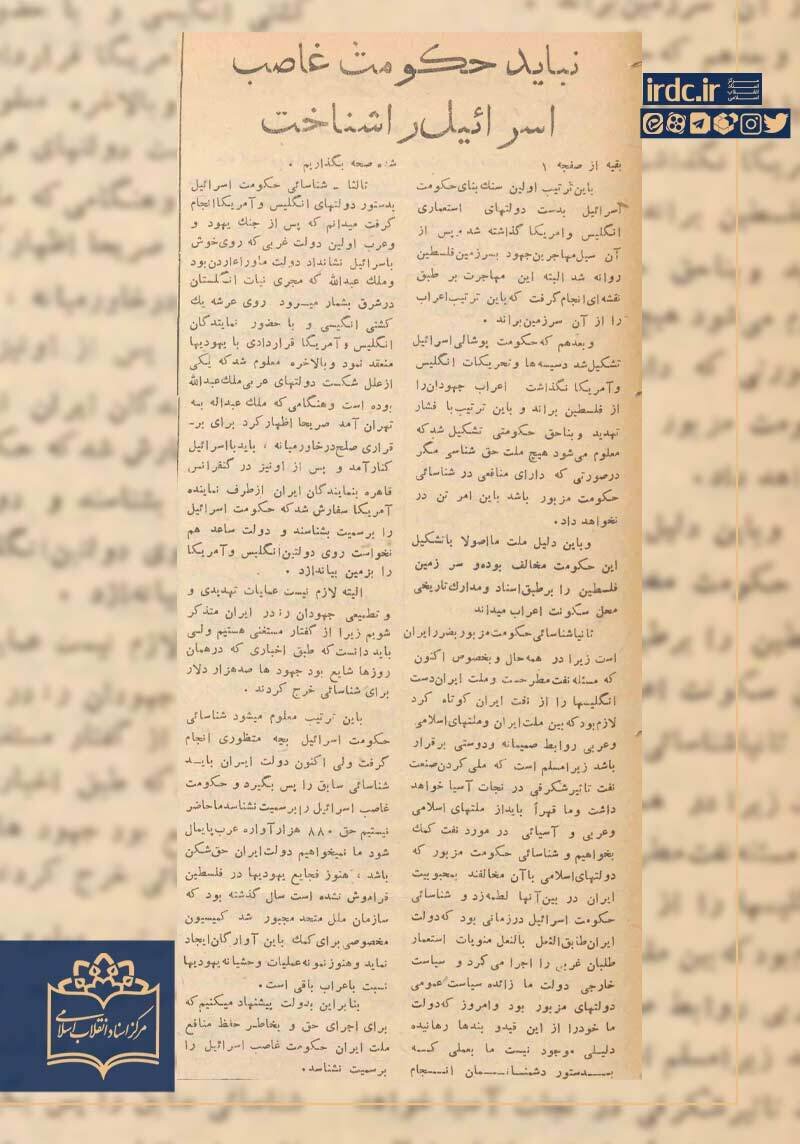 نباید حکومت غاصب
اسرائیل را شناخت
irdc.ir
مرکز
اسناد
انقلاب
اسلامی
بقیه از صفحه ۱
باین ترتیب اولین سنك بنای حکومت
اسرائیل بدست دولتهای استعماری
انگلیس وامریکا گذاشته شد و پس از
آن سیل مهاجرین جهود بسرزمین فلسطین
روانه شد البته این مهاجرت بر طبق
نقشه ای انجام گرفت که باین ترتیب اعراب
را از آن سرزمین براند .
و بعدهم که حکومت پوشالی اسرائیل
تشکیل شد دسیسه ها و تحریکات انگلیس
و آمریکا نگذاشت اعراب جهودان را
از فلسطین براند و باین ترتیب با فشار
تهدید و بناحق حکومتی تشکیل شد که
معلوم می شود هیچ ملت حق شناسی مگر
درصورتی که دارای منافعی در شناسائی
حکومت مزبور باشد باین امر تن در
نخواهد داد.
و باین دلیل ملت ما اصولا با تشکیل
این حکومت مخالف بوده و سر زمین
فلسطین را برطبق اسناد و مدارك تاریخی
محل سکونت اعراب میداند
ثانیا شناسائی حکومت مزبور بضرر ایران
است زیرا در همه حال و بخصوص اکنون
که مسئله نفت مطرحست و ملت ایران دست
انگلیسها را از نفت ایران کوتاه کرد
لازم بود که بین ملت ایران و ملتهای اسلامی
و عربی روابط صمیمانه و دوستی برقرار
باشد زیرا مسلم است که ملی کردن صنعت
نفت تاثیر شگرفی در نجات آسیا خواهد
داشت و ما قهراً باید از ملتهای اسلامی
و عربی و آسیائی در مورد نفت کمك
بخواهیم و شناسائی حکومت مزبور که
دولتهای اسلامی با آن مخالفند بمحبوبیت
ایران در بین آنها لطمه زد و شناسائی
حکومت اسرائیل در زمانی بود که دولت
ایران طابق النعل بالنعل منویات استعمار
طلبان غربی را اجرا می کرد و سیاست
خارجی دولت ما زائده سیاست عمومی
دولتهای مزبور بود و امروز که دولت
ما خود را از این قید و بندها رهانیده
دلیلی موجود نیست ما بعملی کــه
بــدستور دشمنــان انــجام
شده صحه بگذاریم .
ثالثا ـ شناسائی حکومت اسرائیل
بدستور دولتهای انگلیس و آمریکا انجام
گرفت میدانم که پس از جنك یهود و
وعرب اولین دولت غربی که روی خوش
باسرائیل نشانداد دولت ماوراء اردن بود
وملك عبدالله که مجری نیات انگلستان
درشرق بشمار میرود روی عرشه یك
کشتی انگیسی و با حضور نمایندگان
انگلیس و آمریکا قراردادی با یهودیها
منعقد نمود و بالاخره معلوم شد که یکی
از علل شکست دولتهای عربی ملك عبدالله
بوده است و هنگامی که ملك عبداله به
تهران آمد صریحا اظهار کرد برای بر-
قراری صلح در خاورمیانه ، باید با اسرائیل
کنار آمد و پس از اونیز در کنفرانس
قاهره بنمایندگان ایران از طرف نماینده
آمریکا سفارش شد که حکومت اسرائیل
را برسمیت بشناسند و دولت ساعد هم
نخواست روی دولتین انگلیس و آمریکا
را بزمین بیاندازد .
البته لازم نیست عملیات تهدیدی و
و تطمیعی جهودان را در ایران متذکر
شویم زیرا از گفتار مستغنی هستیم ولی
باید دانست که طبق اخباری که درهمان
روزها شایع بود جهود ها صدهزار دلار
برای شناسائی خرج کردند .
باین ترتیب معلوم میشود شناسائی
حکومت اسرائیل بچه منظوری انجام
گرفت ولی اکنون دولت ایران بایــد
شناسائی سابق را پس بگیرد و حکومت
غاصب اسرائیل را برسمیت نشناسد ما حاضر
نیستیم حق ۸۸۰ هزار آواره عرب پایمال
شود ما نمیخواهیم دولت ایران حق شکن
باشد ، هنوز فجایع یهودیها در فلسطین
فراموش نشده است سال گذشته بود که
سازمان ملل متحد مجبور شد کمیسیون
مخصوصی برای کمك باین آوارگان ایجاد
نماید و هنوز نمونه عملیات وحشیانه یهودیها
نسبت باعراب باقی است .
بنابراین بدولت پیشنهاد میکنیم که
برای اجرای حق و بخاطر حفظ منافع
ملت ایران حکومت غاصب اسرائیل را
برسمیت نشناسد .
مرکز اسناد انقلاب اسلامی